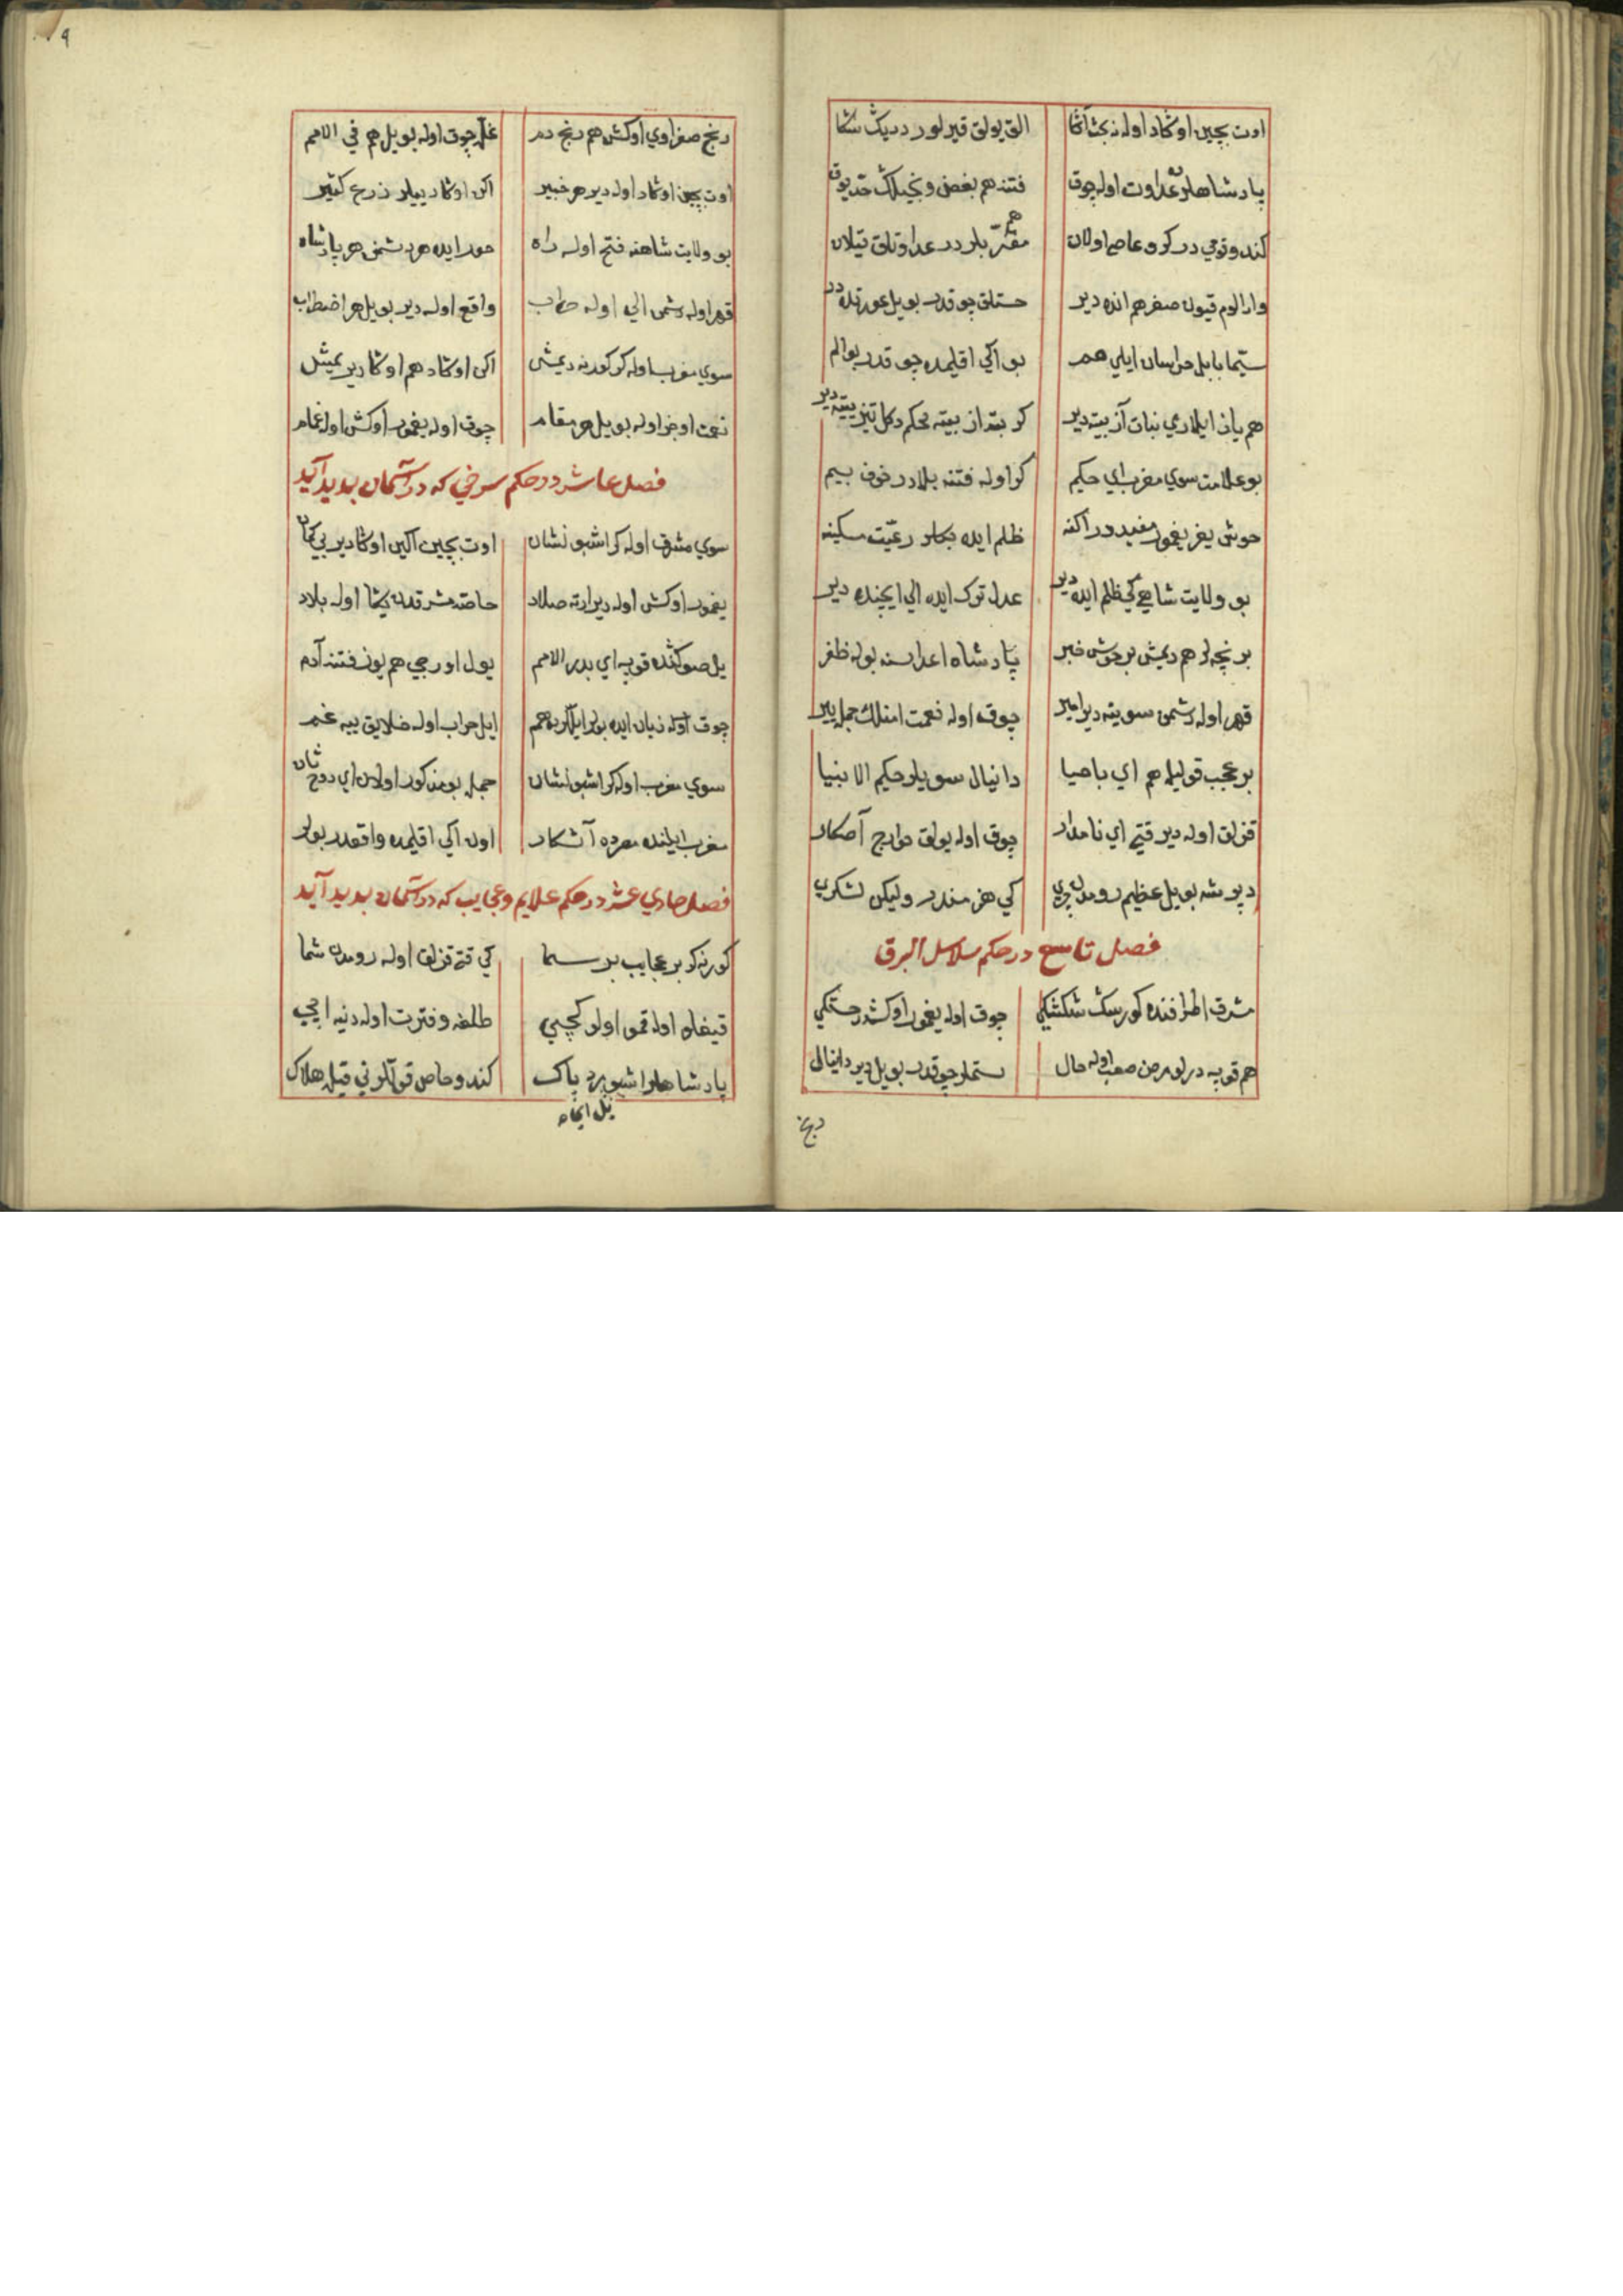 اوت بچین اوکاد اوله نکثاکا الق یولق قیرلور دریک شکا
پادشاهلر عداوت اوله چوق فتنه هم بغض و بخیلك حد یوق
کندوتوجی در کرو عاصی اولان مقرر بلر در عداوتلق قیلان هم
وار الوم قیون صغر هم انده دیر خستلق چوقدر بو یل عورتده در
سیما بابل خراسان ایلی هم بو اکی اقلیمده چوقدر بو الم
هم یان ایللری نبات آز بیته دیر کر بته از بیته محکم دکل تیز یته دیر
بو علامت سوی مغرب ای حکیم کر اوله فتنه بلادر خوف بیم
خوش یغر یغمور مفیددر اکنه ظلم ایده بکلر رعیت مسکینه
بو ولایت شاهی کی ظلم ایده دیر عدل ترک ایده الی ایچنده دیر
بر نچه لر هم دیمش بر خوش خبر پادشاه اعداسنه بوله ظفر
قهر اوله دشمن سوینه دیر امیر چوق اوله نعمت امنلك جمله ییر
بر عجب قولیله هم ای باحیا دانیال سویلر حکیم الانبیا
قزلق اوله دیر قتی ای نامدار چوق اوله یولق خوارج آصکار
دپرشه بو یل عظیم رومدن چری کی هنرمندر ولیکن لشکری
فصل تاسع در حکم سلاسل البرق
مشرق اطرافنده کورسك شکشکی چوق اوله یغمور اوکشدر خستکی
هم قوپه درلو مرض صعب اوله حال ستملر چوقدر بو یل دیر دانیال
رنج صفراوی اوکش هم رنج دم غله چوق اوله بو یل هم فی الامم
اوت بچین اوکاد اوله دیر هر خبیر اکن اوکاد ییلر زرع کثیر
بو ولایت شاهنه فتح اوله راه خور ایده هر دشمن هر پادشاه
قهر اوله دشمن الی اوله خراب واقع اوله دیر بو یل هر اضطراب
سوی مغرب اوله کر کورنه دیمش اکن اوکاد هم اوکا دیر یمیش
نعمت اوجز اوله بو یل هر مقام چوق اوله یغمور اوکش اوله غمام
فصل عاشر در حکم سرخی که در آسمان بدید آید
سوی مشرق اوله کر اشبو نشان اوت بچین اکین اوکا دیر بی کمان
یغمور اوکش اوله دیر ارته صلاد خاصه مشرقدن یکا اوله بلاد
یل صوکنده قوپه ای بدر الامم یول اوریجی هم یوز فتنه آدم
چوق اوله زیان ایده بولر ایللره هم ایل خراب اوله خلایق ییه غم
سوی مغرب اوله کر اشبو نشان جمله بو مذکور اولان ای روح شان
مغرب ایلنده مصرده آشکار اول اکی اقلیمده واقعدر بولر
فصل حادی عشر در حکم علایم و عجایب که در آسمان بدید آید
کورنه کر بر عجایب بر سما کی قتی قزلق اوله رومدن شما
قیغلو اوله قمو اولو کچی طلغه و فترت اوله دنیه ایچی
پادشاهلر اشبو یرد پاک کندو خاص قوللرینی قیله هلاک